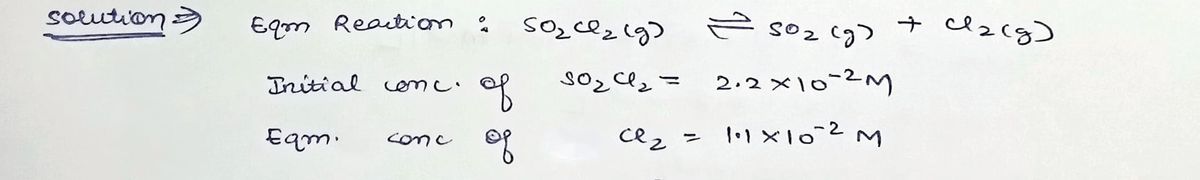 solution ⇒ Eqm Reaction : SO₂Cl₂(g) ⇌ SO₂(g) + Cl₂(g)
Initial conc. of SO₂Cl₂ = 2.2×10⁻² M
Eqm. conc of Cl₂ = 1.1×10⁻² M